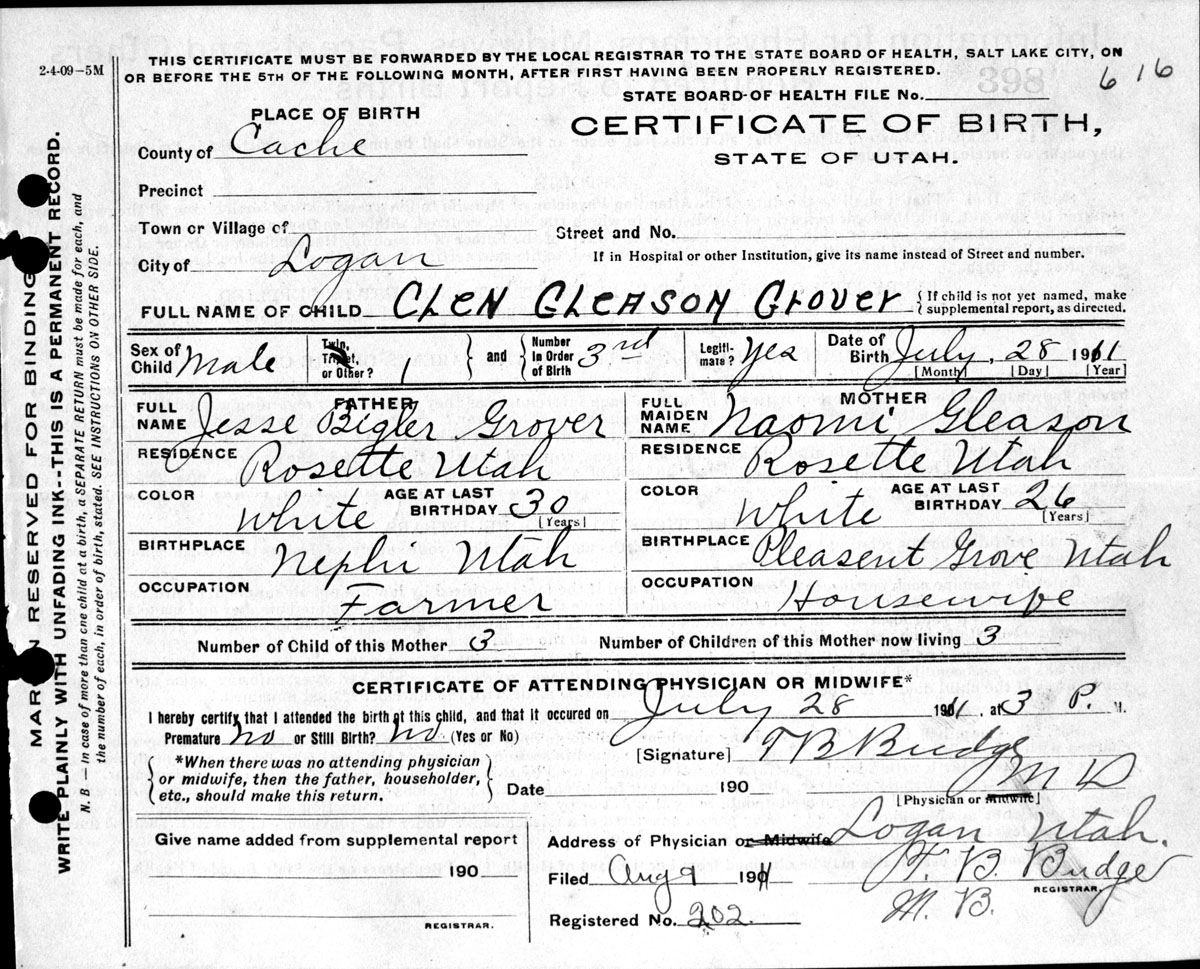 2-4-09-5M
THIS CERTIFICATE MUST BE FORWARDED BY THE LOCAL REGISTRAR TO THE STATE BOARD OF HEALTH, SALT LAKE CITY, ON
OR BEFORE THE 5TH OF THE FOLLOWING MONTH, AFTER FIRST HAVING BEEN PROPERLY REGISTERED.
616
STATE BOARD OF HEALTH FILE No.
PLACE OF BIRTH
CERTIFICATE OF BIRTH,
STATE OF UTAH.
County of Cache
Precinct
Town or Village of
Street and No.
City of Logan
If in Hospital or other Institution, give its name instead of Street and number.
FULL NAME OF CHILD CLEN GLEASON GROVER { If child is not yet named, make
supplemental report, as directed.
Sex of Child Male Twin, Triplet, or Other? 1 } and { Number in Order of Birth 3rd Legiti-mate? yes Date of Birth July 28 1911
[Month] [Day] [Year]
FATHER
FULL NAME Jesse Bigler Grover
RESIDENCE Rosette Utah
COLOR White AGE AT LAST BIRTHDAY 30 [Years]
BIRTHPLACE Nephi Utah
OCCUPATION Farmer
MOTHER
FULL MAIDEN NAME Naomi Gleason
RESIDENCE Rosette Utah
COLOR White AGE AT LAST BIRTHDAY 26 [Years]
BIRTHPLACE Pleasent Grove Utah
OCCUPATION Housewife
Number of Child of this Mother 3 Number of Children of this Mother now living 3
CERTIFICATE OF ATTENDING PHYSICIAN OR MIDWIFE*
I hereby certify that I attended the birth of this child, and that it occured on July 28 1911, at 3 P. M.
Premature no or Still Birth? no (Yes or No)
[Signature] T B Budge
M D
{ *When there was no attending physician
or midwife, then the father, householder,
etc., should make this return. }
Date 190
[Physician or Midwife]
Give name added from supplemental report
190
REGISTRAR.
Address of Physician or Midwife Logan Utah.
Filed Aug 9 1911 T. B. Budge
REGISTRAR.
M. B.
Registered No. 202
MARGIN RESERVED FOR BINDING
WRITE PLAINLY WITH UNFADING INK--THIS IS A PERMANENT RECORD.
N. B.—In case of more than one child at a birth, a SEPARATE RETURN must be made for each, and
the number of each, in order of birth, stated. SEE INSTRUCTIONS ON OTHER SIDE.